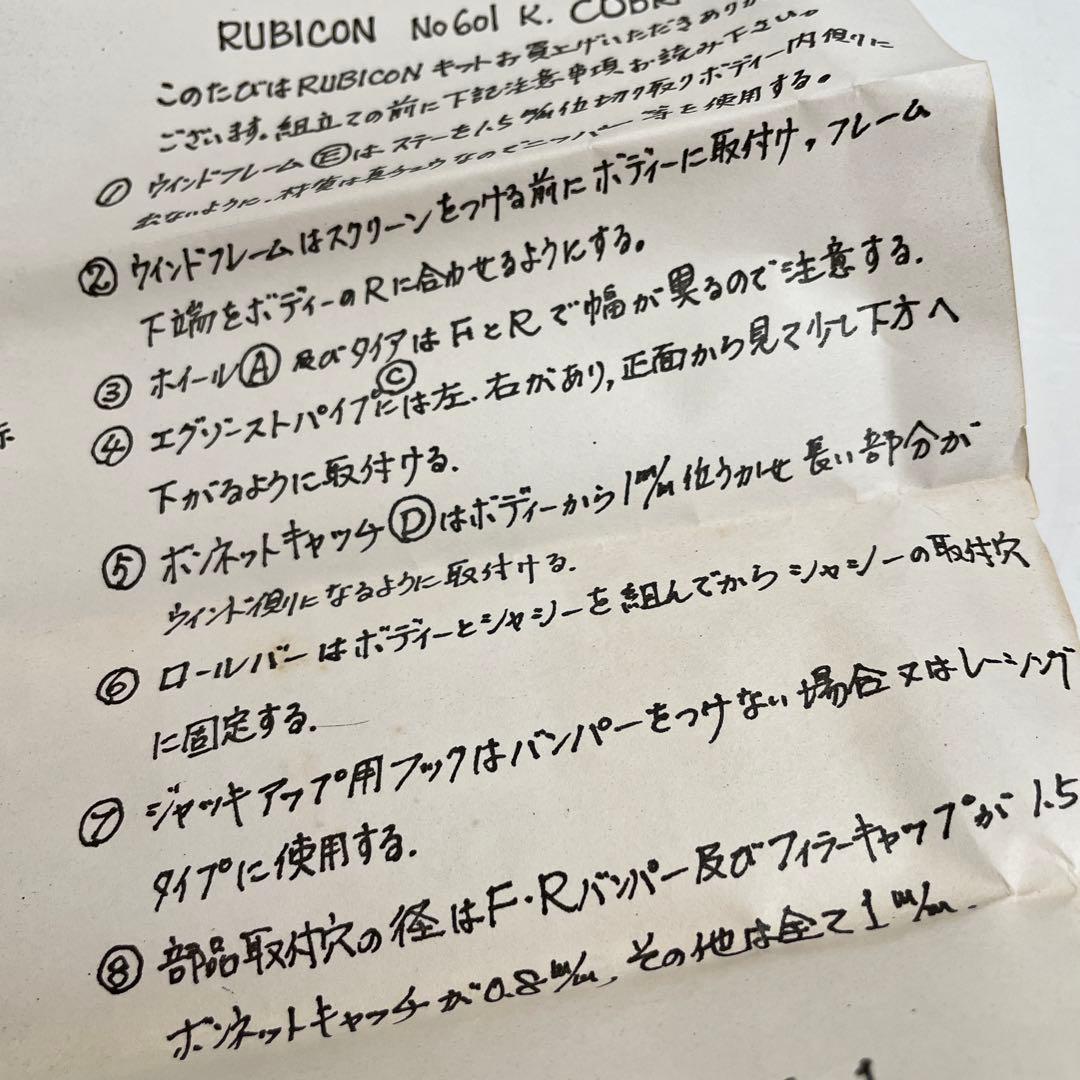 RUBICON No601 K. COBR
このたびはRUBICONキットお買上げいただきありが
ございます。組立ての前に下記注意事項お読み下さい。
① ウインドフレームⒺはステーを1.5m/m位切り取りボディー内側に
出ないように、材質は真チュウなのでニッパー等を使用する。
② ウインドフレームはスクリーンをつける前にボディーに取付け, フレーム
下端をボディーのRに合わせるようにする。
③ ホイールⒶ及びタイアはFとRで幅が異るので注意する.
④ エグゾーストパイプⒸには左、右があり, 正面から見て少し下方へ
下がるように取付ける.
⑤ ボンネットキャッチⒹはボディーから1m/m位うかせ長い部分が
ウィンド側になるように取付ける.
⑥ ロールバーはボディーとシャシーを組んでからシャシーの取付穴
に固定する.
⑦ ジャッキアップ用フックはバンパーをつけない場合又はレーシング
タイプに使用する.
⑧ 部品取付穴の径はF・Rバンパー及びフィラーキャップが1.5
ボンネットキャッチが0.8m/m、その他は全て1m/m.